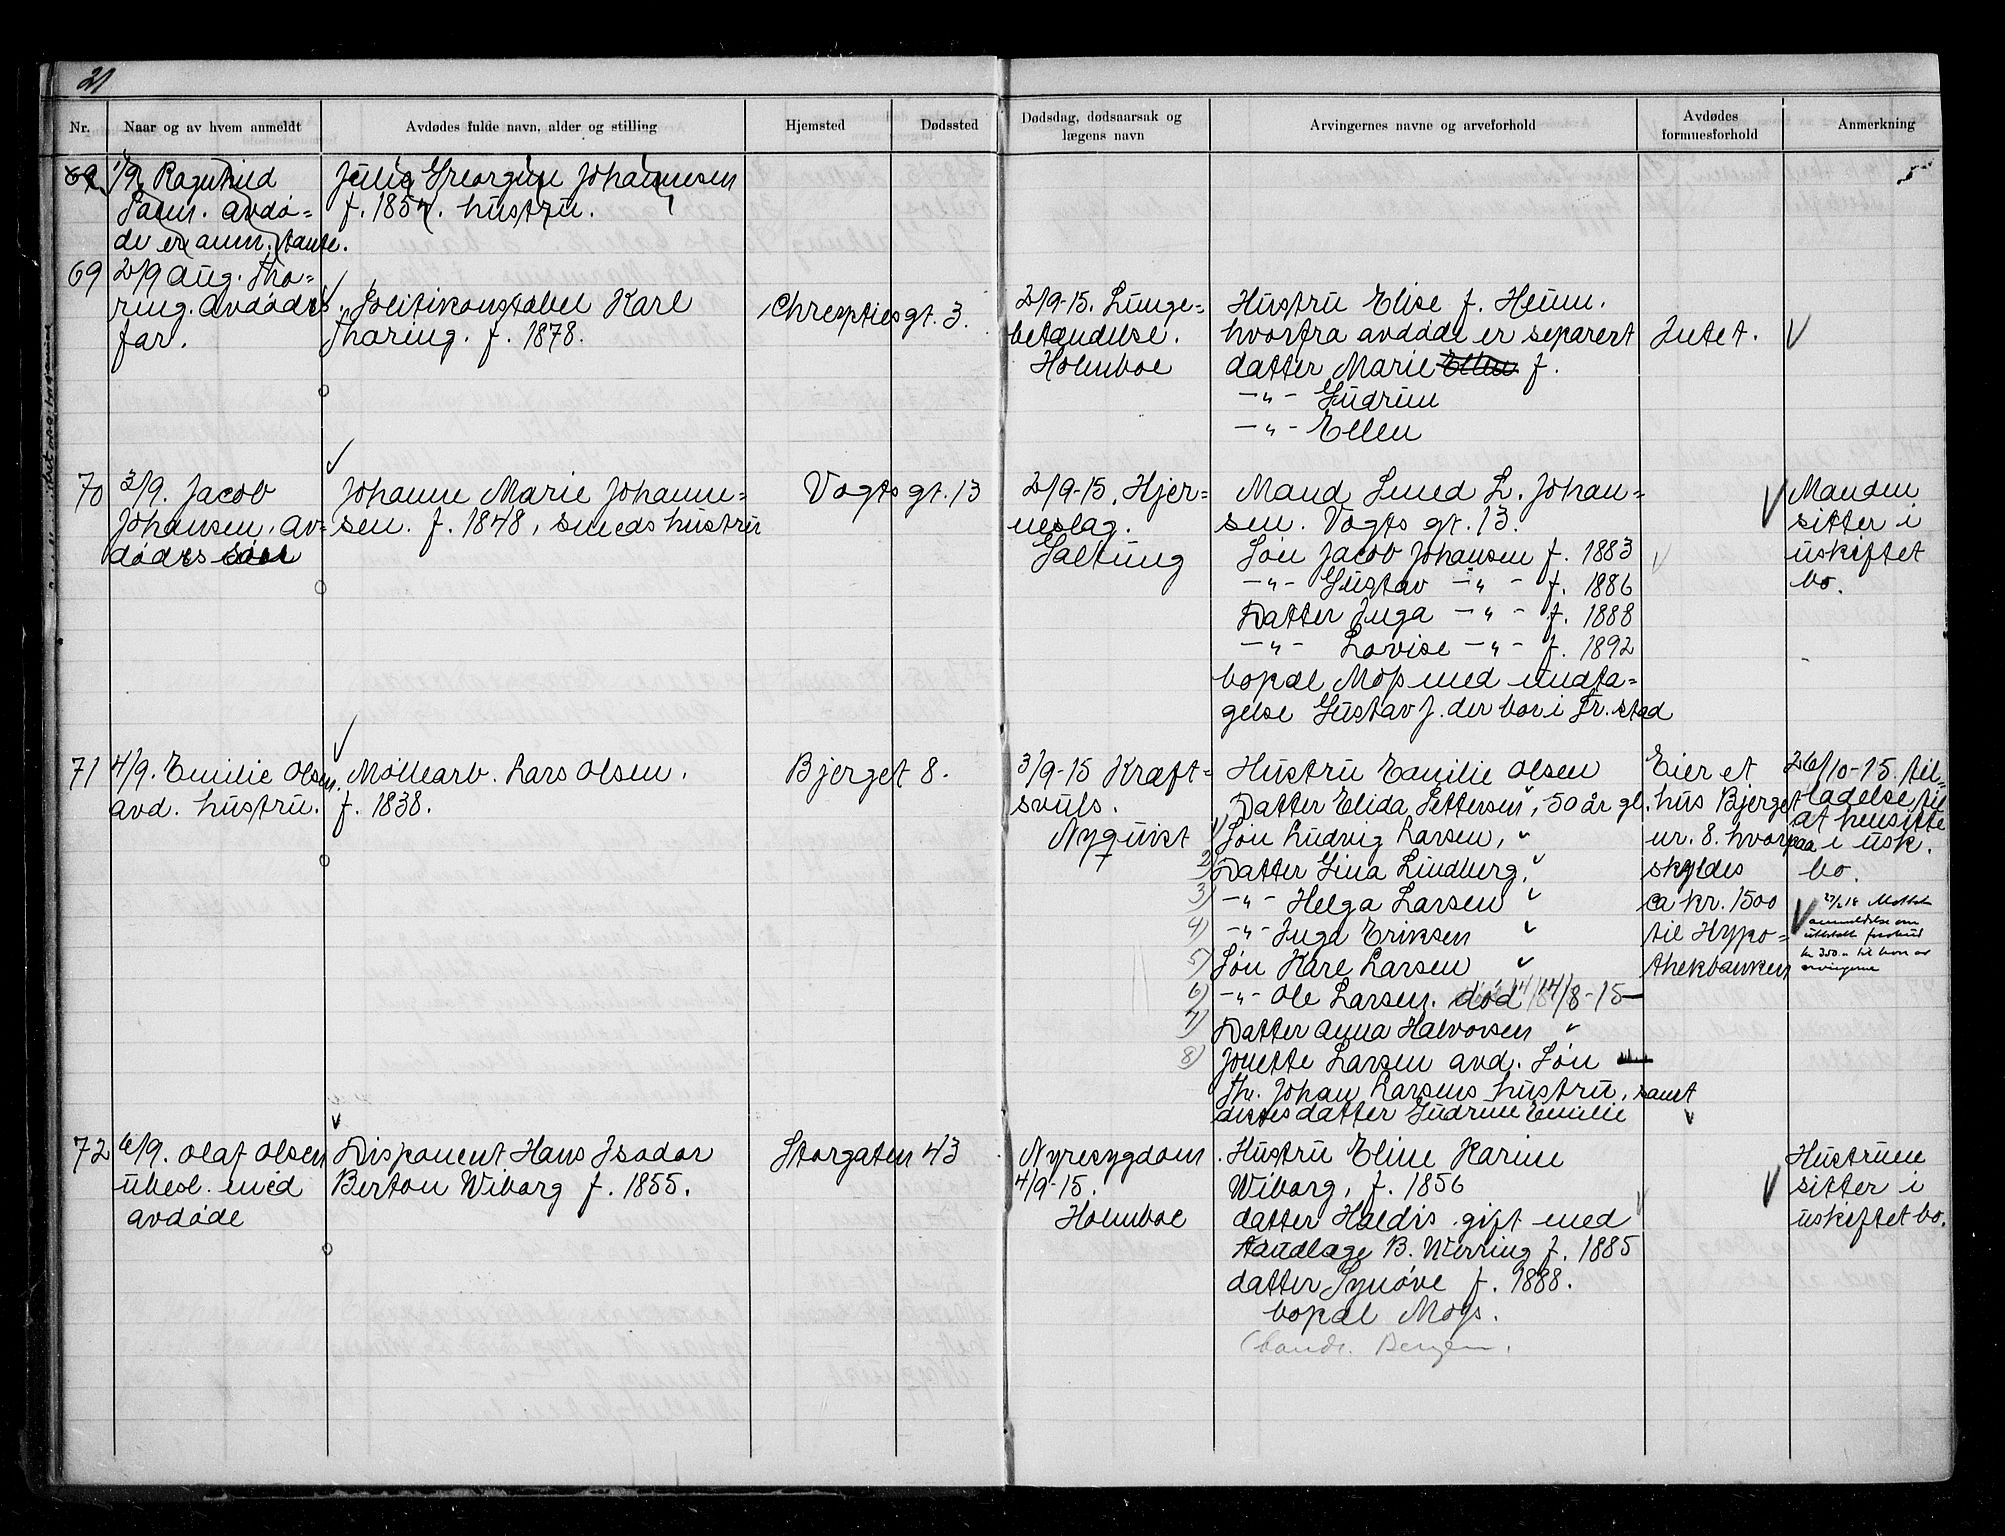 21
Nr.
Naar og av hvem anmeldt
Avdødes fulde navn, alder og stilling
Hjemsted
Dødssted
Dødsdag, dødsaarsak og
lægens navn
Arvingernes navne og arveforhold
Avdødes
formuesforhold
Anmerkning
69 1/9 Ragnhild
avdø-
de er anm. tante.
Julie Georgine Johannesen
f. 1854. hustru.
69 2/9 Aug. Tho-
ring. Avdødes
far.
Politikonstabel Karl
Thoring. f. 1878.
gt. 3.
2/9-15. Lunge-
betændelse.
Holmboe
Hustru Elise f. Heum.
hvorfra avdøde er separert
datter Marie Ellen f.
-„- Gudrun
-„- Ellen
Intet.
70 3/9. Jacob
Johansen, av-
dødes søn
Johanne Marie Johanne-
sen. f. 1848, smeds hustru
Vogts gt. 13
2/9-15, Hjer-
neslag.
Saltung
Mand Smed L. Johan-
sen. Vogts gt. 13.
Søn Jacob Johansen f. 1883
-„- Gustav -„- f. 1886
Datter Inga -„- f. 1888
-„- Lovise -„- f. 1892
bopæl Moss med undta-
gelse Gustav J. der bor i Fr.stad
Manden
sitter i
uskiftet
bo.
71 4/9. Emilie Olsen,
avd. hustru.
Møllearb. Lars Olsen.
f. 1838.
Bjerget 8.
3/9-15 Kræft-
svuls.
Nyquist
Hustru Emilie Olsen
Datter Elida Pettersen, 50 år gl.
1) Søn Ludvig Larsen,
2) Datter Gina Lindberg,
3) -„- Helga Larsen
4) -„- Inga Eriksen
5) Søn Karl Larsen
6) -„- Ole Larsen. død 14/8-15
7) Datter Anna Halvorsen
8) Jonette Larsen avd. Søn
Th. Johan Larsens hustru, samt
disses datter Gudrun Emilie
Eier et
hus Bjerget
nr. 8. hvorpaa
skyldes
ca kr. 1500
til Hypo-
thekbanken
26/10-15. til-
ladelse til
at hensitte
i usk.
bo.
anmeldelse om
utbetalt forskud
kr 350.- til hver av
arvingerne
72 6/9. Olaf Olsen
ubesl. med
avdøde
Disponent Hans Isador
Berton Wiborg f. 1855.
Storgaten 43
Nyresygdom
4/9-15.
Holmboe
Hustru Eline Karine
Wiborg, f. 1856
datter Haldis gift med
tandlæge B. Werring f. 1885
datter Synøve f. 1888.
bopæl Moss.
Bergen.
Hustruen
sitter i
uskiftet bo.